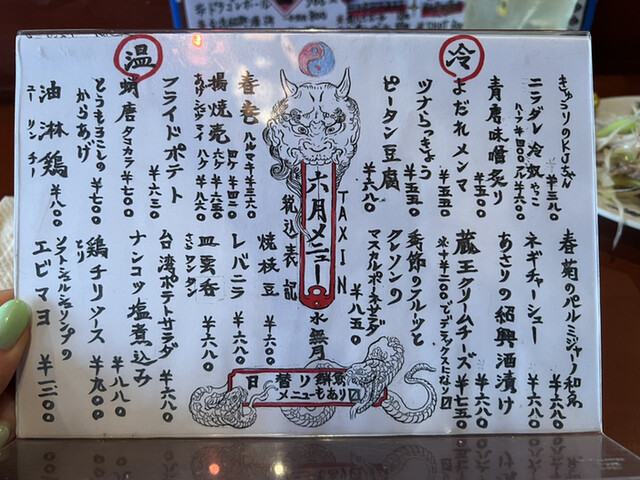 冷
きゅうりのKJちゃん ¥三八〇
ニラダレ冷奴
ハーフ¥四〇〇 ¥六〇〇
青唐味噌炙り ¥五〇〇
よだれメンマ ¥五五〇
ツナらっきょう ¥五五〇
ピータン豆腐 ¥六八〇
春菊のパルミジャーノ和え ¥六八〇
ネギチャーシュー ¥六八〇
あさりの紹興酒漬け ¥六八〇
蔵王クリームチーズ ¥七五〇
季節のフルーツと
クレソンの
マスカルポーネサラダ ¥八五〇
六月メニュー
TAX IN
税込表記
水無月
温
春巻 ハルマキ ¥三六〇
揚焼売
あげシュウマイ
四ケ ¥四四〇
六ケ ¥六五〇
フライドポテト ¥六三〇
蛸唐 タコカラ ¥六五〇
とうもろこしの
からあげ ¥七〇〇
油淋鶏 ユーリンチー ¥八〇〇
焼枝豆 ¥六〇〇
レバニラ ¥六八〇
皿雲呑 ¥六八〇
さらワンタン
台湾ポテトサラダ ¥六八〇
ナンコツ塩煮込み ¥八八〇
鶏チリソース ¥九〇〇
とり
ソフトシェルシュリンプの
エビマヨ ¥一三〇〇
日替り
メニューもあり〼